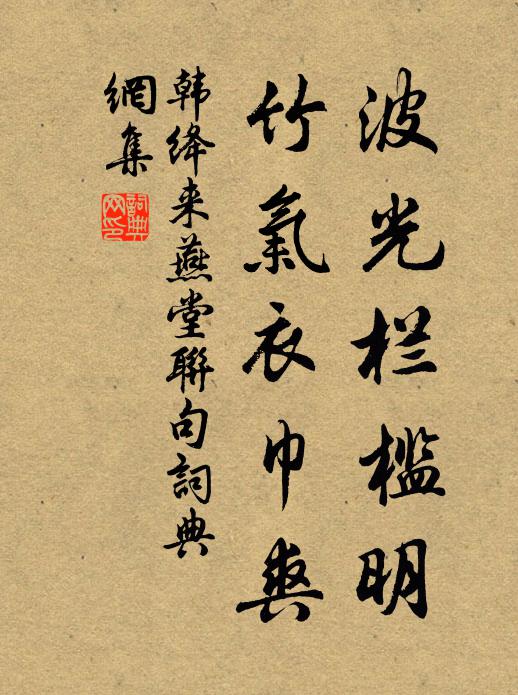 波光栏槛明
竹氣衣巾爽
韩绛来燕堂聯句詞典
網集
詞典网印